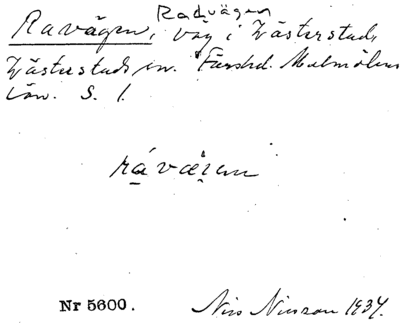 Radvägen
Ravägen, väg i Västerstads,
Västerstads sn. Färshd. Malmöhus
län. S. 1.
rávæ̀ʒen
Nr 5600. Nils Nilsson 1934.